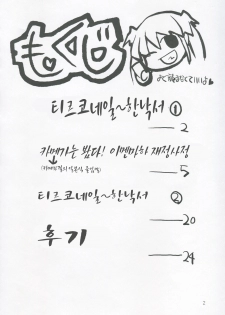 もくじ
티르코네일~한낙서 ①
2
카메가는 봤다! 이멘마하 재정사정
5
티르코네일~한낙서 ②
20
후기
24
2